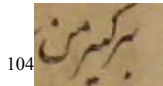 104 برکیرمن